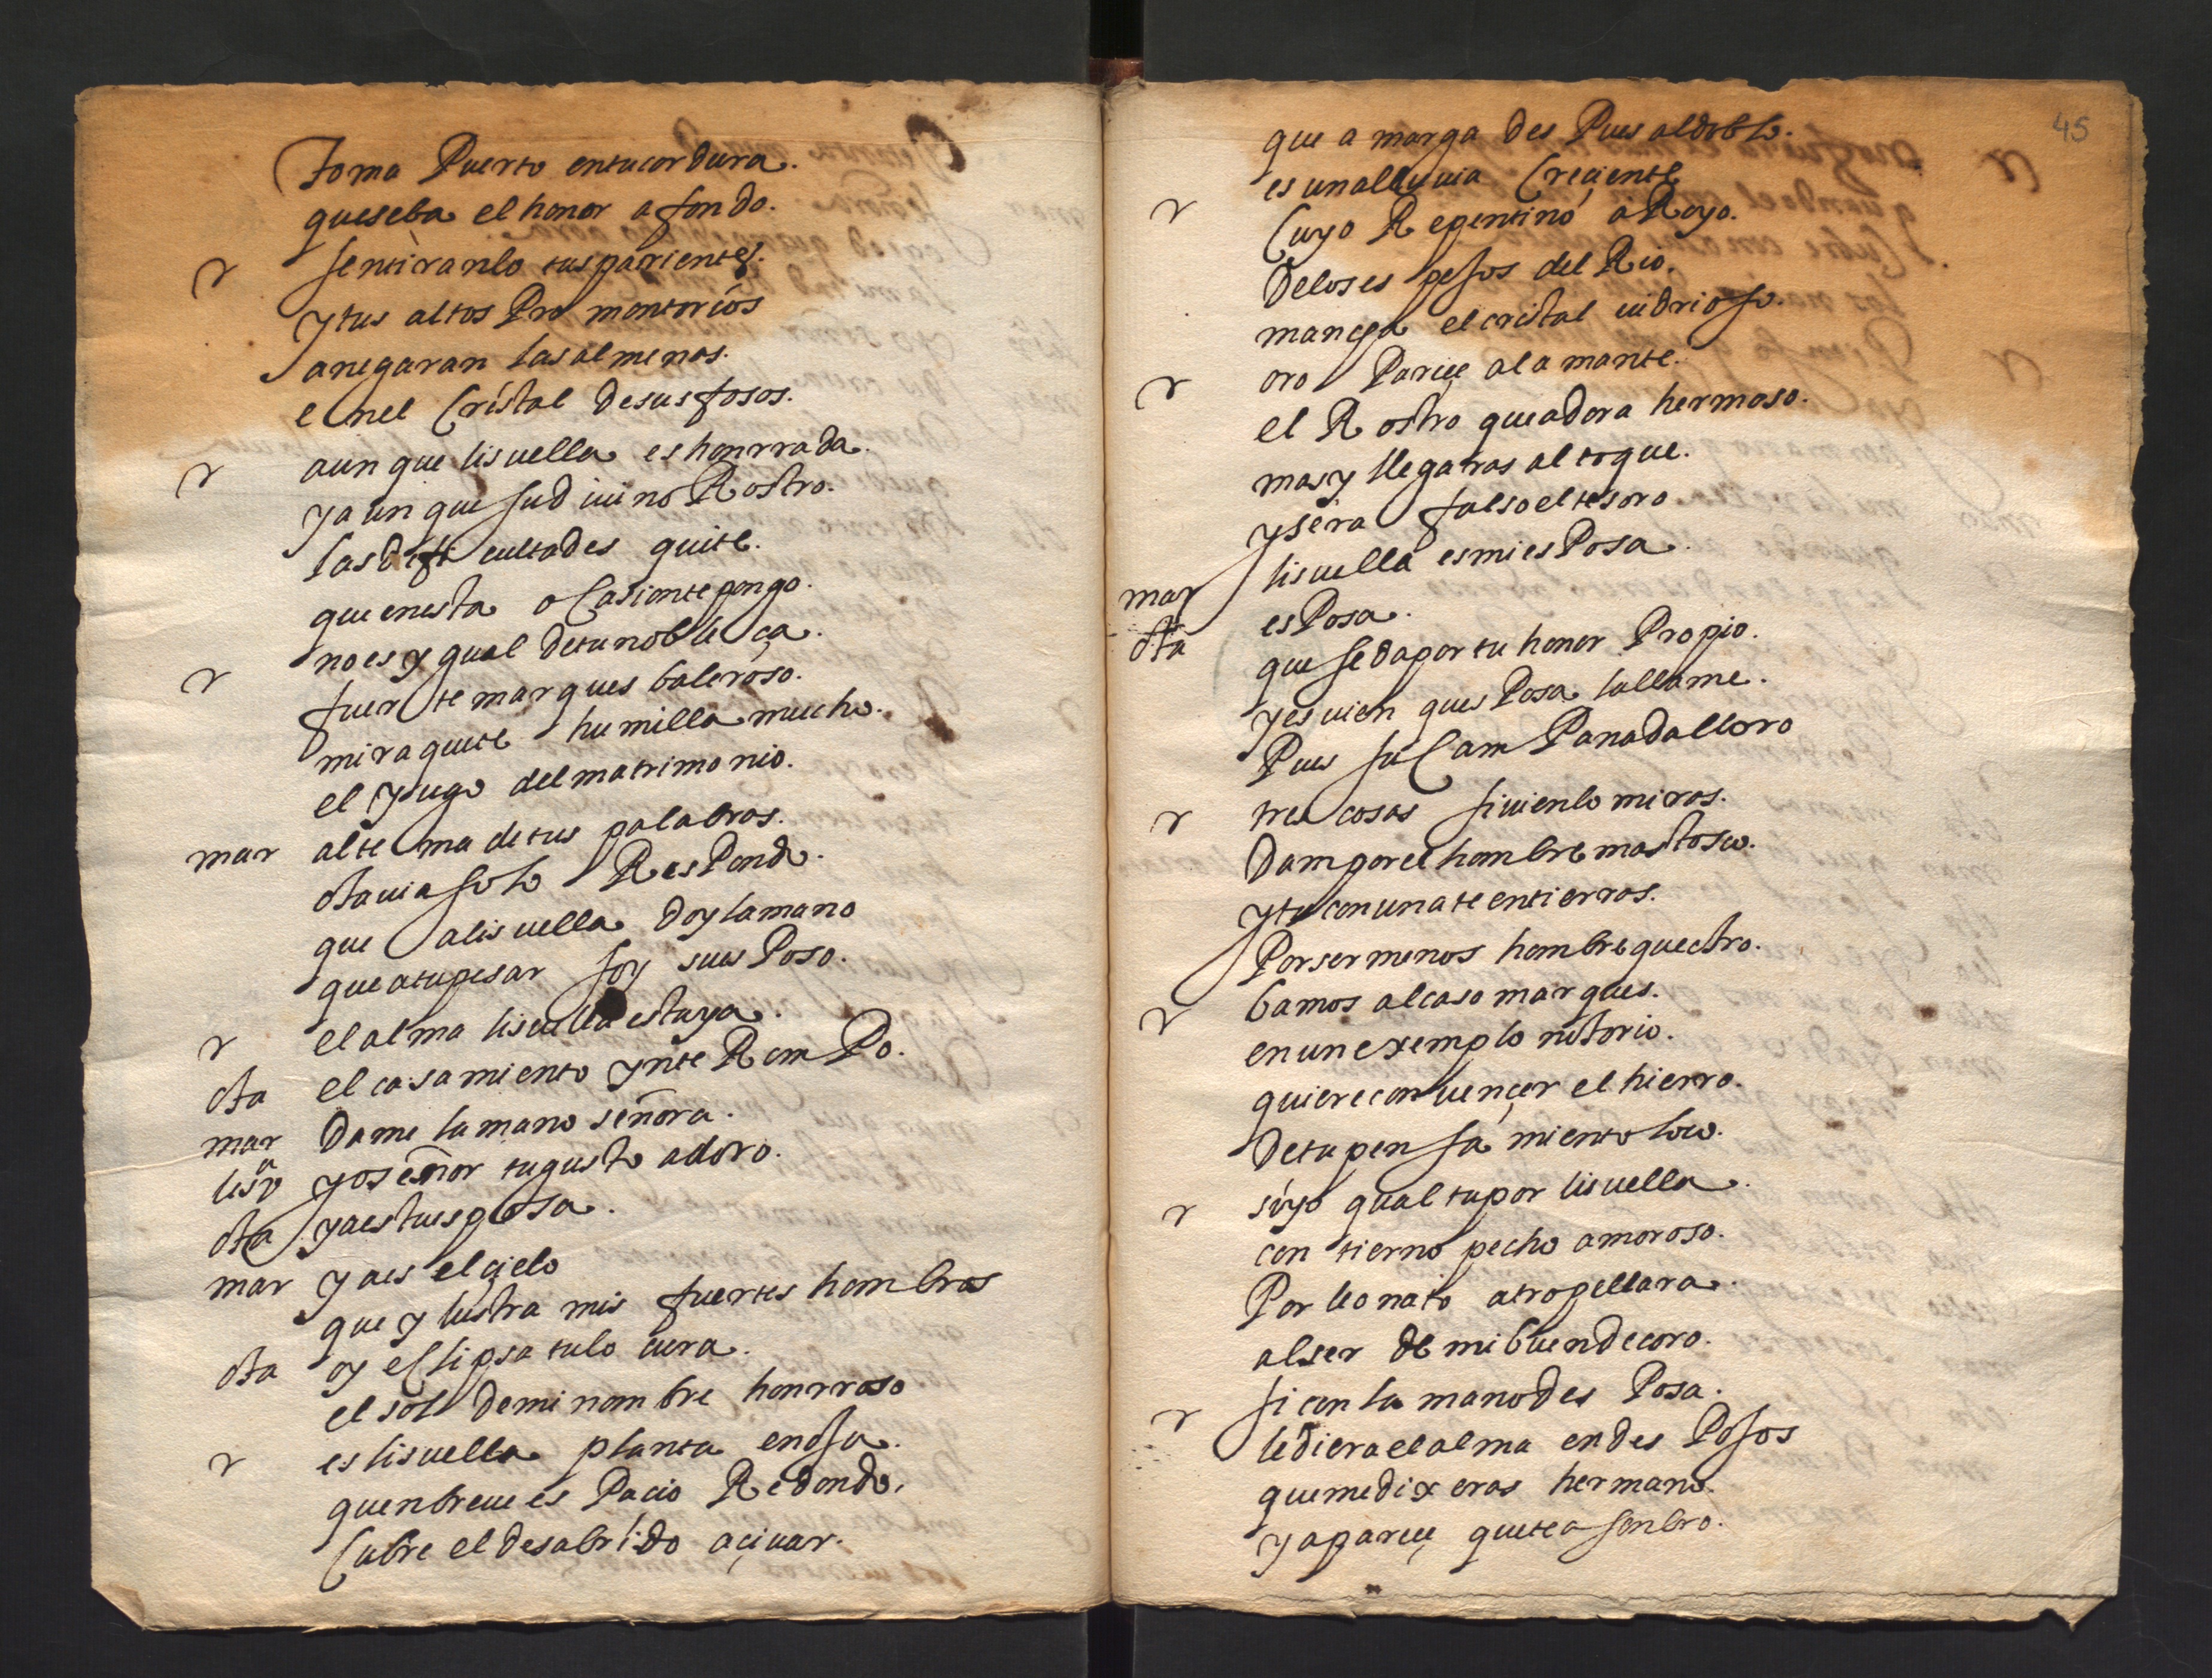 toma Puerto entucordura.
queseba el honor a fondo.
r sentiranlo tusparientes.
ytus altos Pro montorios
anegaran lasalmenas.
e nel Cristal desusfosos.
r aunque lisuella es honrrada.
yaunque sud iuino Rostro.
lasdifi cultades quite.
que enesta oCasiontepongo.
noes y gual detunoble ça.
r fuerte marques baleroso.
miraquete humilla mucho.
el yugo delmatrimonio.
mar alte ma detus palabras.
otauia solo ResPondo.
que alisuella doy lamano
queatupesar soy sues Poso.
r elalma lisuella estuya.
ota elcasamiento ynte Rom Po.
mar Dame lamano señora.
lisua yoseñor tugusto adoro.
ota yaestuesposa.
mar yaes elçielo
que y lustra mis fuertes hombros
ota oy eClipsa tulo cura.
elsol demi nombre honrroso
r es lisuella planta enosa.
quenbreue es Pacio Redondo,
Cubre eldesabrido açiuar.
45
que a marga des Pues aldoblo.
es unalluuia Creciente
r Cuyo Repentino aRoyo.
Deloses pesos del Rio.
mancha elcristal uidrioso.
r oro Pareçe alamante.
el Rostro queadora hermoso.
masy llegaras altoque.
ysera falsoeltesoro.
mar lisuella esmiesPosa.
ota esPosa.
que sedaportu honor Propio.
yesuien quesPosa lallame.
Pues su Cam Panadalloro
r tres cosas siuienlo miras.
Damporelhombre mastosco.
ytuconunateentierras.
Porsermenos hombrequeotro.
r bamos alcaso marques.
enunexemplo notorio.
quiereconuençer elhierro.
detupen sa miento loco.
r siyo qualtupor lisuella.
con tierno pecho amoroso.
Por leonato atropellara.
alser de mibuendecoro.
r siconla manodes Posa.
lediera elalma endes Posos
quemedixeras hermano.
yapareçe quetea sonbro.